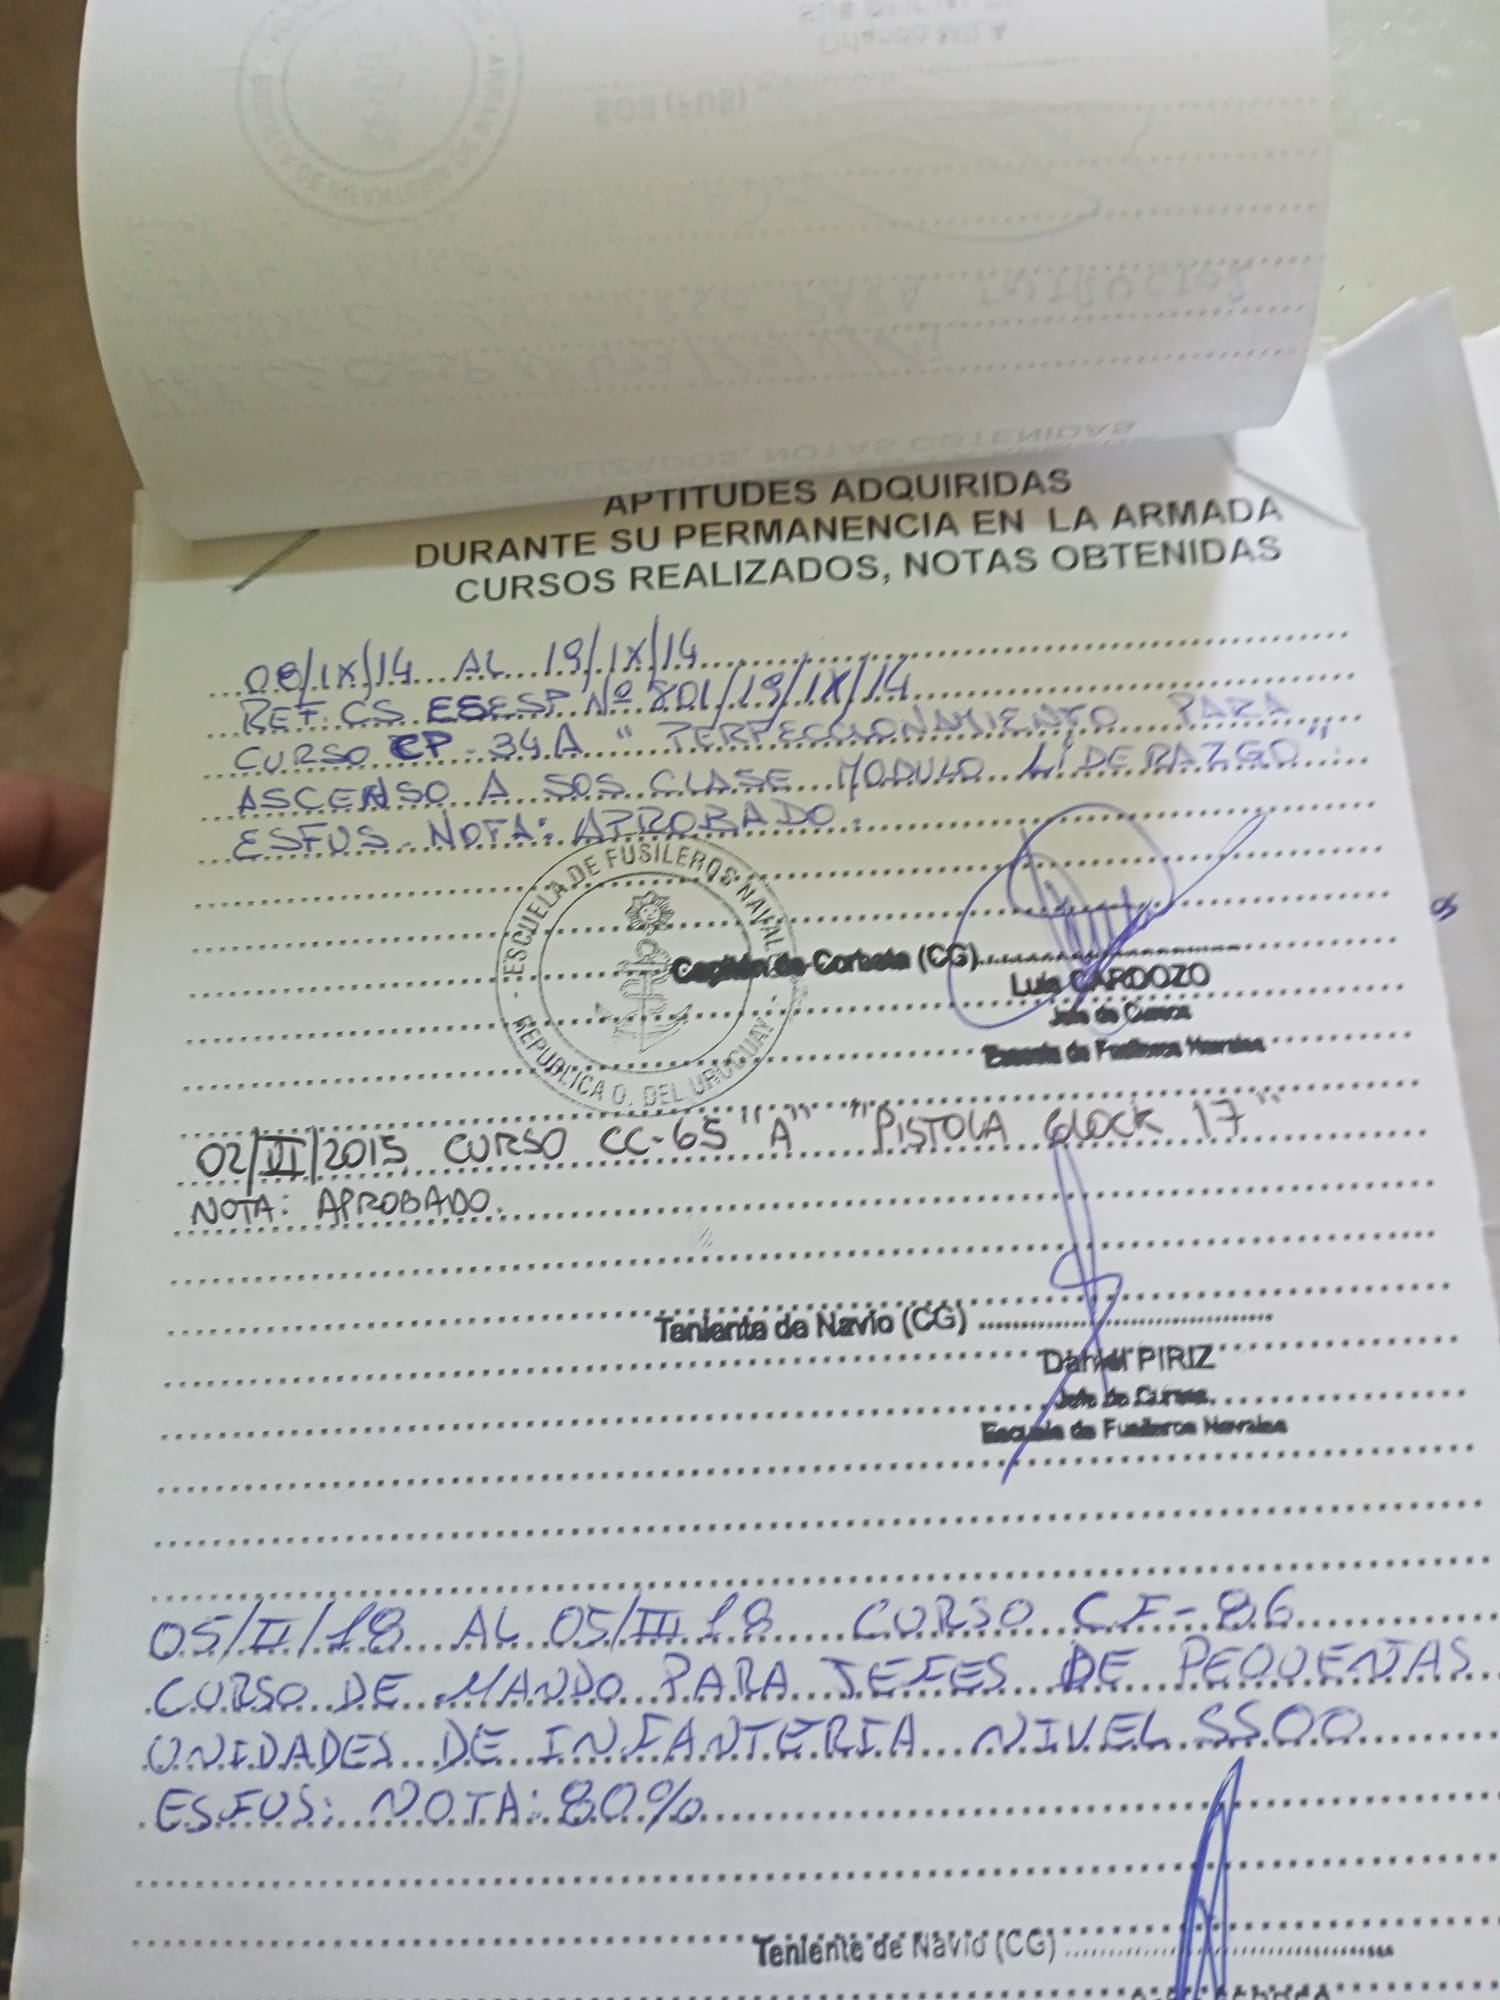 APTITUDES ADQUIRIDAS
DURANTE SU PERMANENCIA EN LA ARMADA
CURSOS REALIZADOS, NOTAS OBTENIDAS
08/IX/14 AL 19/IX/14
REF. CS ESESP Nº 801/19/IX/14
CURSO CP-34A "PERFECCIONAMIENTO PARA
ASCENSO A SOS CLASE MODULO LIDERAZGO".
ESFUS NOTA: APROBADO.
ESCUELA DE FUSILEROS NAVALES
REPUBLICA O. DEL URUGUAY
Capitán de Corbeta (CG)
Luis CARDOZO
Jefe de Cursos
Escuela de Fusileros Navales
02/VI/2015 CURSO CC-65 "A" "PISTOLA Glock 17"
NOTA: APROBADO.
Teniente de Navio (CG)
Daniel PIRIZ
Jefe de Cursos
Escuela de Fusileros Navales
05/II/18 AL 05/III 18 CURSO CF-86
CURSO DE MANDO PARA JEFES DE PEQUENAS
UNIDADES DE INFANTERIA NIVEL SSOO
ESFUS: NOTA: 80%
Teniente de Navio (CG)